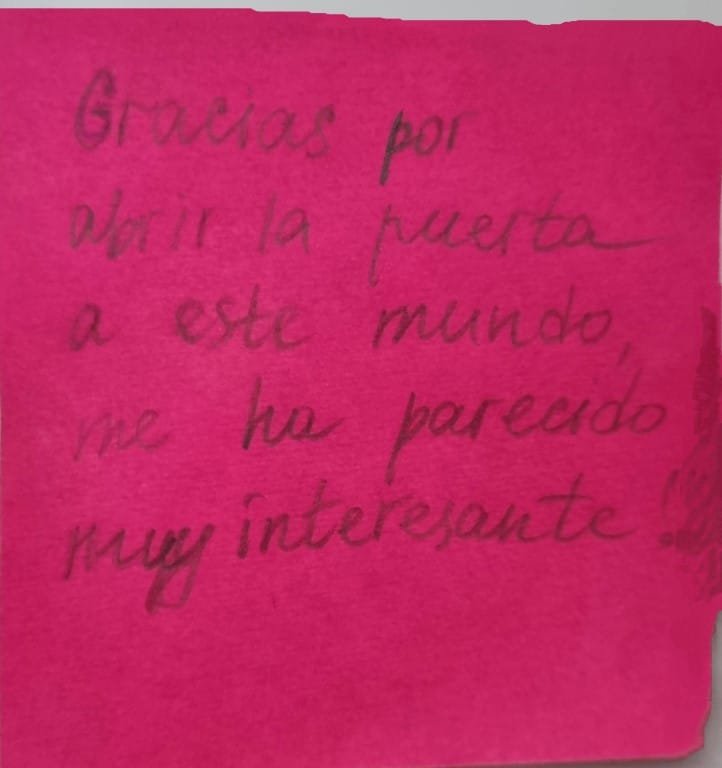 Gracias por
abrir la puerta
a este mundo,
me ha parecido
muy interesante